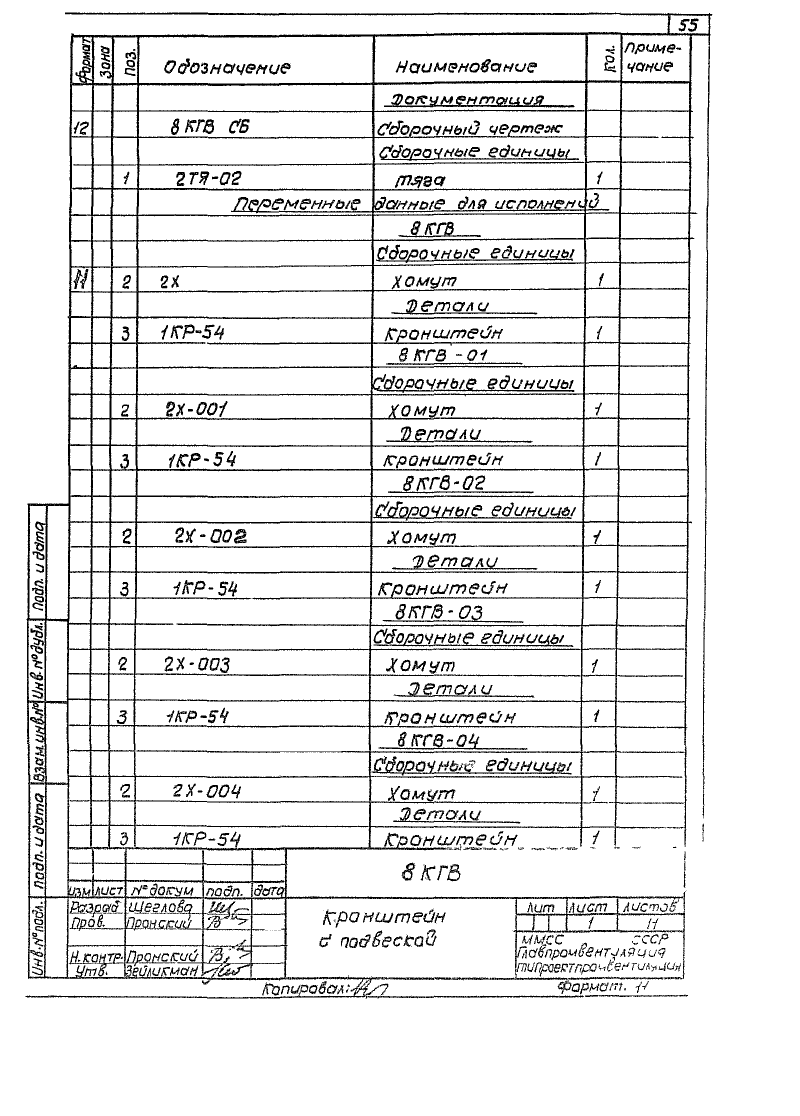 55
Формат Зона Поз. Обозначение Наименование Кол. Приме-
чание
Документация
12 8КГВ СБ Сборочный чертеж
Сборочные единицы
1 2ТЯ-02 тяга 1
Переменные данные для исполнений
8КГВ
Сборочные единицы
11 2 2Х Хомут 1
Детали
3 1КР-54 Кронштейн 1
8КГВ-01
Сборочные единицы
2 2Х-001 Хомут 1
Детали
3 1КР-54 Кронштейн 1
8КГВ-02
Сборочные единицы
2 2Х-002 Хомут 1
Детали
3 1КР-54 Кронштейн 1
8КГВ-03
Сборочные единицы
2 2Х-003 Хомут 1
Детали
3 1КР-54 Кронштейн 1
8КГВ-04
Сборочные единицы
2 2Х-004 Хомут 1
Детали
3 1КР-54 Кронштейн 1
Подп. и дата
Инв. № дубл.
Взам. инв. №
Подп. и дата
Инв. № подл.
8КГВ
изм лист № докум подп. дата
Разраб Щеглова
Пров. Пронский
Н.контр Пронский
Утв. Зейликман
Кронштейн
с подвеской
Лит Лист Листов
1 11
ММСС СССР
Главпромвентиляция
гипроектпромвентиляция
Копировал:
Формат. 11